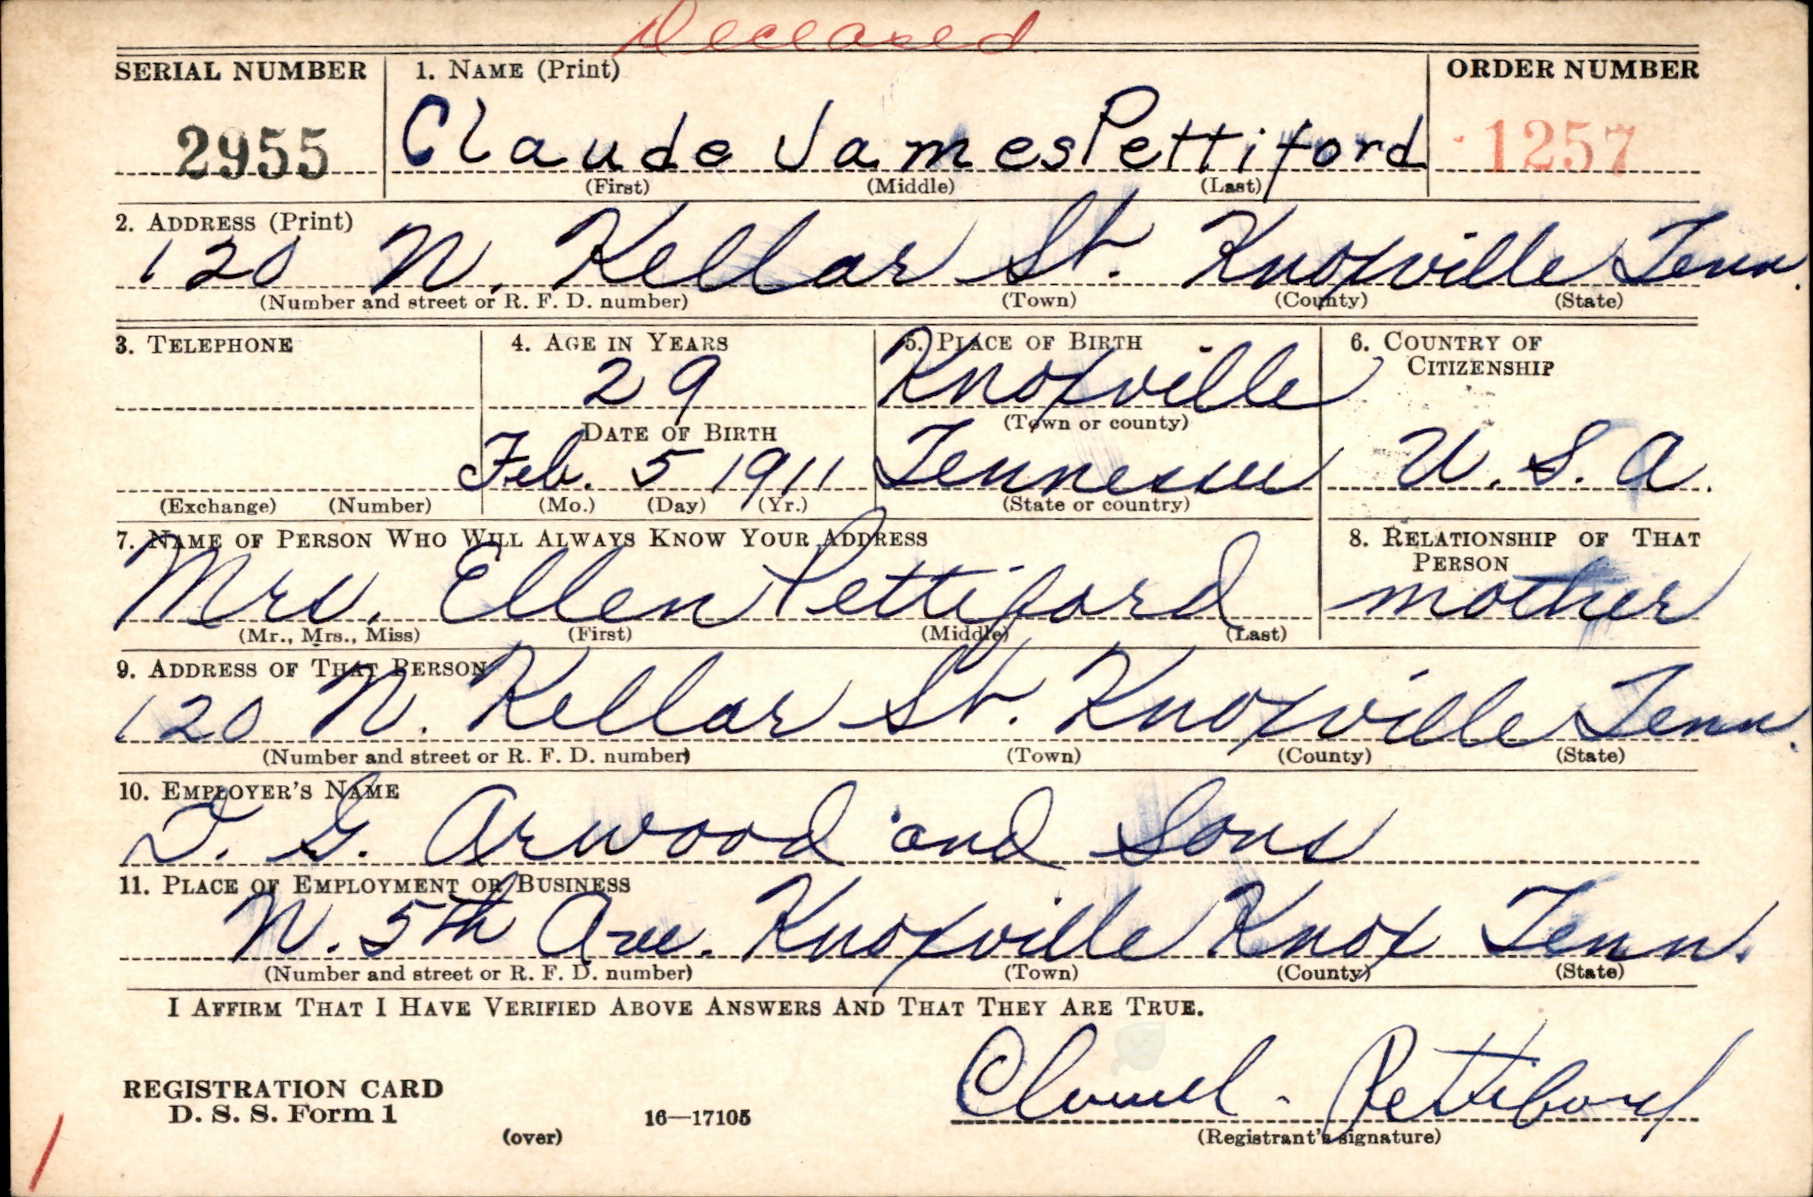 Deceased
SERIAL NUMBER 1. NAME (Print) ORDER NUMBER
2955 Claude James Pettiford 1257
(First) (Middle) (Last)
2. ADDRESS (Print)
120 N. Kellar St. Knoxville Tenn.
(Number and street or R. F. D. number) (Town) (County) (State)
3. TELEPHONE 4. AGE IN YEARS 5. PLACE OF BIRTH 6. COUNTRY OF CITIZENSHIP
29 Knoxville
(Town or county)
DATE OF BIRTH
Feb. 5 1911 Tennessee U. S. A.
(Exchange) (Number) (Mo.) (Day) (Yr.) (State or country)
7. NAME OF PERSON WHO WILL ALWAYS KNOW YOUR ADDRESS 8. RELATIONSHIP OF THAT PERSON
Mrs. Ellen Pettiford mother
(Mr., Mrs., Miss) (First) (Middle) (Last)
9. ADDRESS OF THAT PERSON
120 N. Kellar St. Knoxville Tenn.
(Number and street or R. F. D. number) (Town) (County) (State)
10. EMPLOYER'S NAME
D. G. Arwood and Sons
11. PLACE OF EMPLOYMENT OR BUSINESS
N. 5th Ave. Knoxville Knox Tenn.
(Number and street or R. F. D. number) (Town) (County) (State)
I AFFIRM THAT I HAVE VERIFIED ABOVE ANSWERS AND THAT THEY ARE TRUE.
Pettiford
REGISTRATION CARD
D. S. S. Form 1 16—17105
(over) (Registrant's signature)